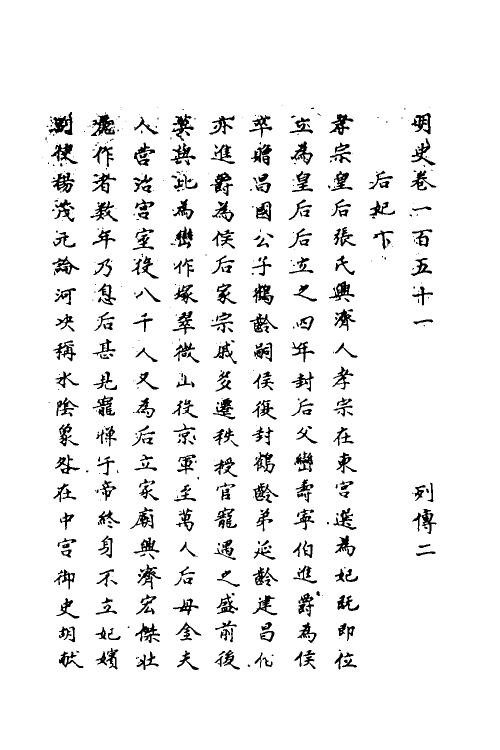 明史卷一百五十一　列傳二
后妃下
孝宗皇后張氏興濟人孝宗在東宮選為妃既即位
立為皇后后立之四年封后父巒壽寧伯進爵為侯
卒贈昌國公子鶴齡嗣侯復封鶴齡弟延齡建昌伯
亦進爵為侯后家宗戚多遷秩授官寵遇之盛前後
莫與比為巒作塚翠微山役京軍至萬人后母金夫
人營治宮室役八千人又為后立家廟興濟宏傑壯
麗作者数年乃息后甚見寵憚于帝終身不立妃嬪
副使楊茂元論河决稱水陰象咎在中宮御史胡献